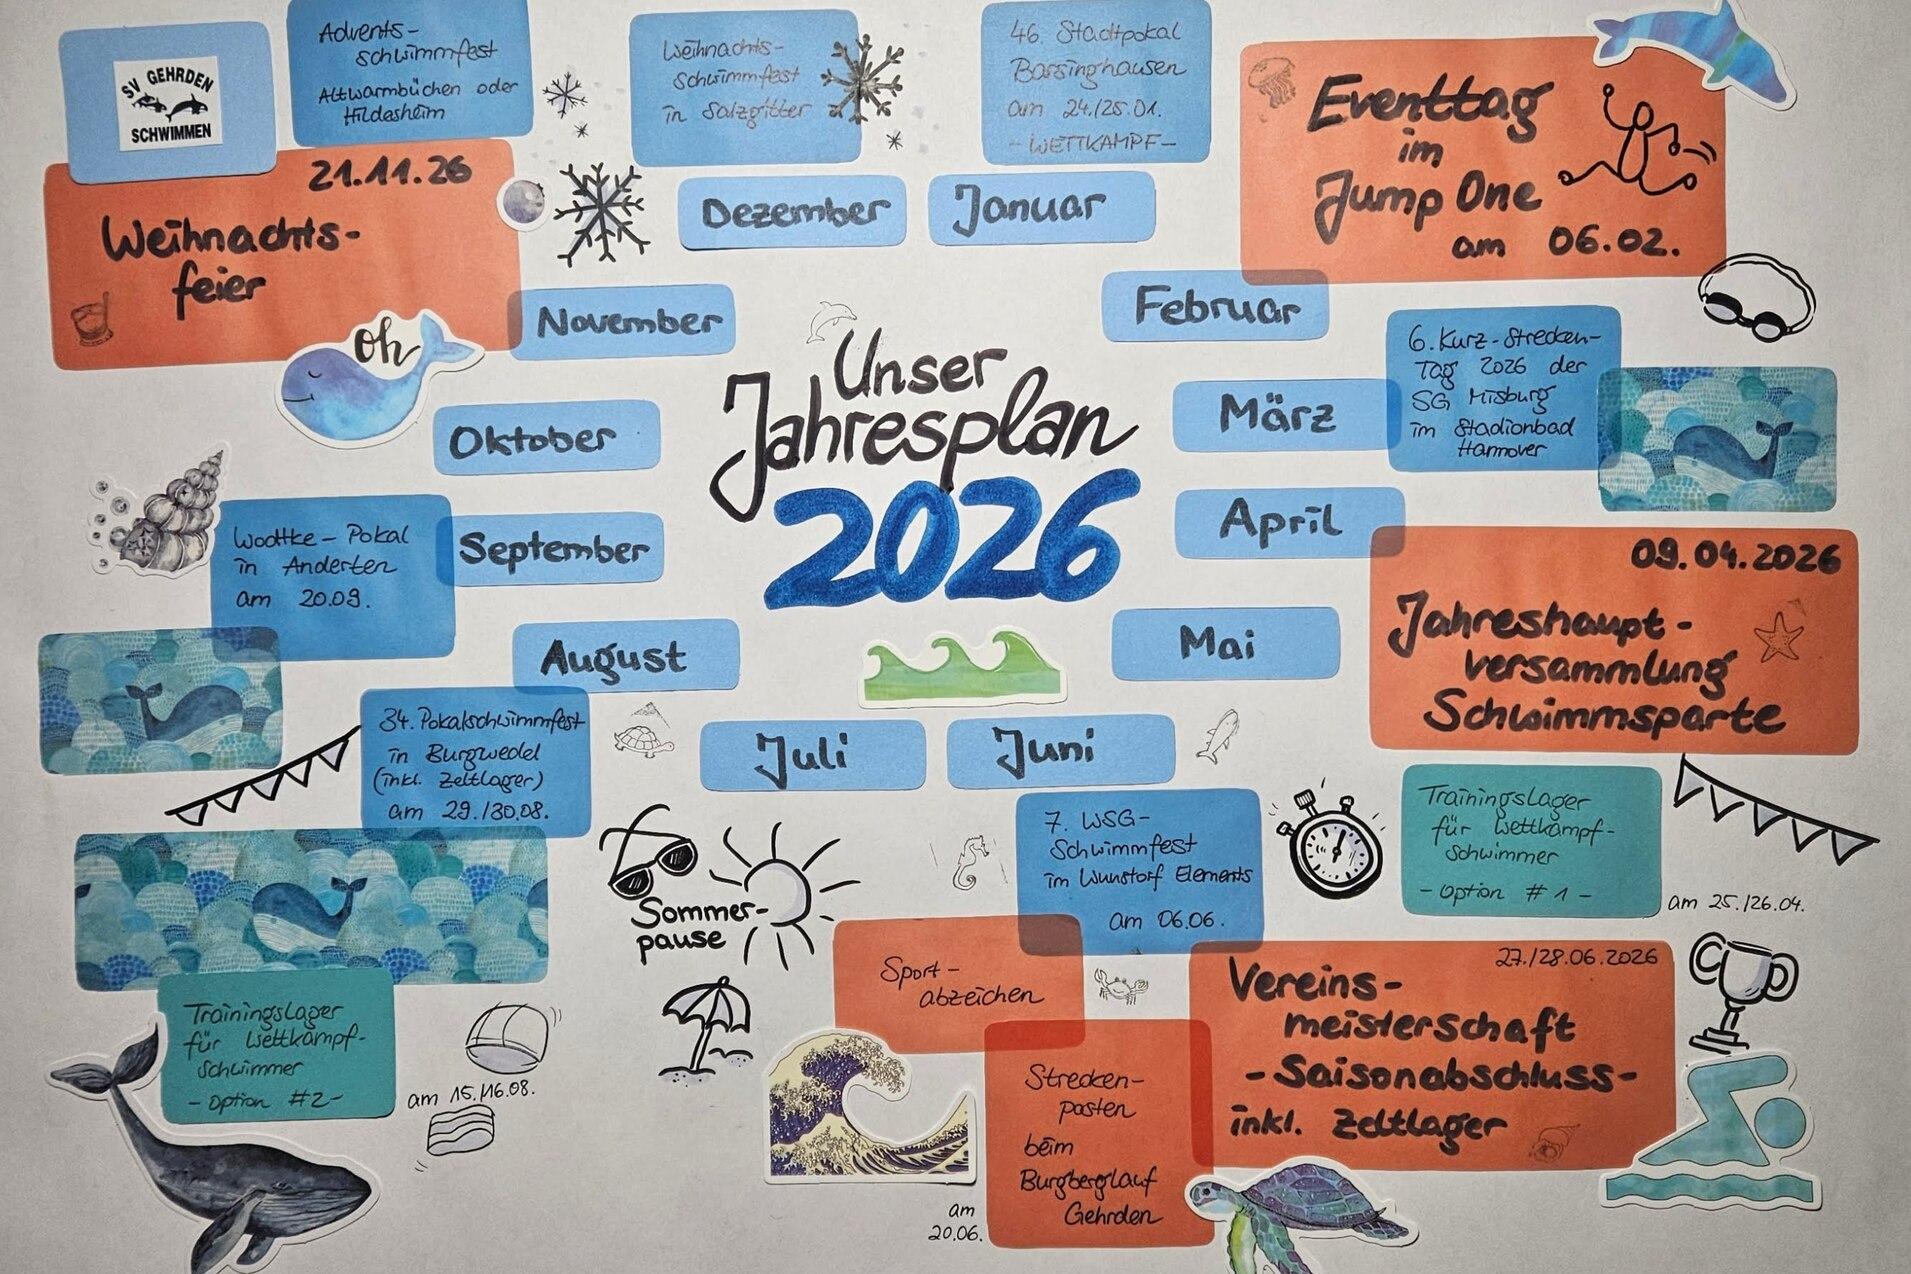 SV GEHRDEN
SCHWIMMEN
Advents-
schwimmfest
Altwarmbüchen oder
Hildesheim
Weihnachts-
schwimmfest
in Salzgitter
46. Stadtpokal
Barsinghausen
am 24./25.01.
- WETTKAMPF -
Eventtag
im
Jump One
am 06.02.
21.11.26
Weihnachts-
feier
Dezember
Januar
November
Februar
oh
Unser
Jahresplan
2026
Oktober
März
6. Kurz-Strecken-
Tag 2026 der
SG Misburg
im Stadionbad
Hannover
Wodtke-Pokal
in Anderten
am 20.09.
September
April
09.04.2026
Jahreshaupt-
versammlung
Schwimmsparte
August
Mai
34. Pokalschwimmfest
in Burgwedel
(inkl. Zeltlager)
am 29./30.08.
Juli
Juni
Sommer-
pause
7. WSG-
Schwimmfest
im Wunstorf Elements
am 06.06.
Trainingslager
für Wettkampf-
schwimmer
- Option #1 -
am 25./26.04.
Sport-
abzeichen
27./28.06.2026
Vereins-
meisterschaft
- Saisonabschluss -
inkl. Zeltlager
Trainingslager
für Wettkampf-
schwimmer
- Option #2 -
am 15./16.08.
Strecken-
posten
beim
Burgberglauf
Gehrden
am
20.06.